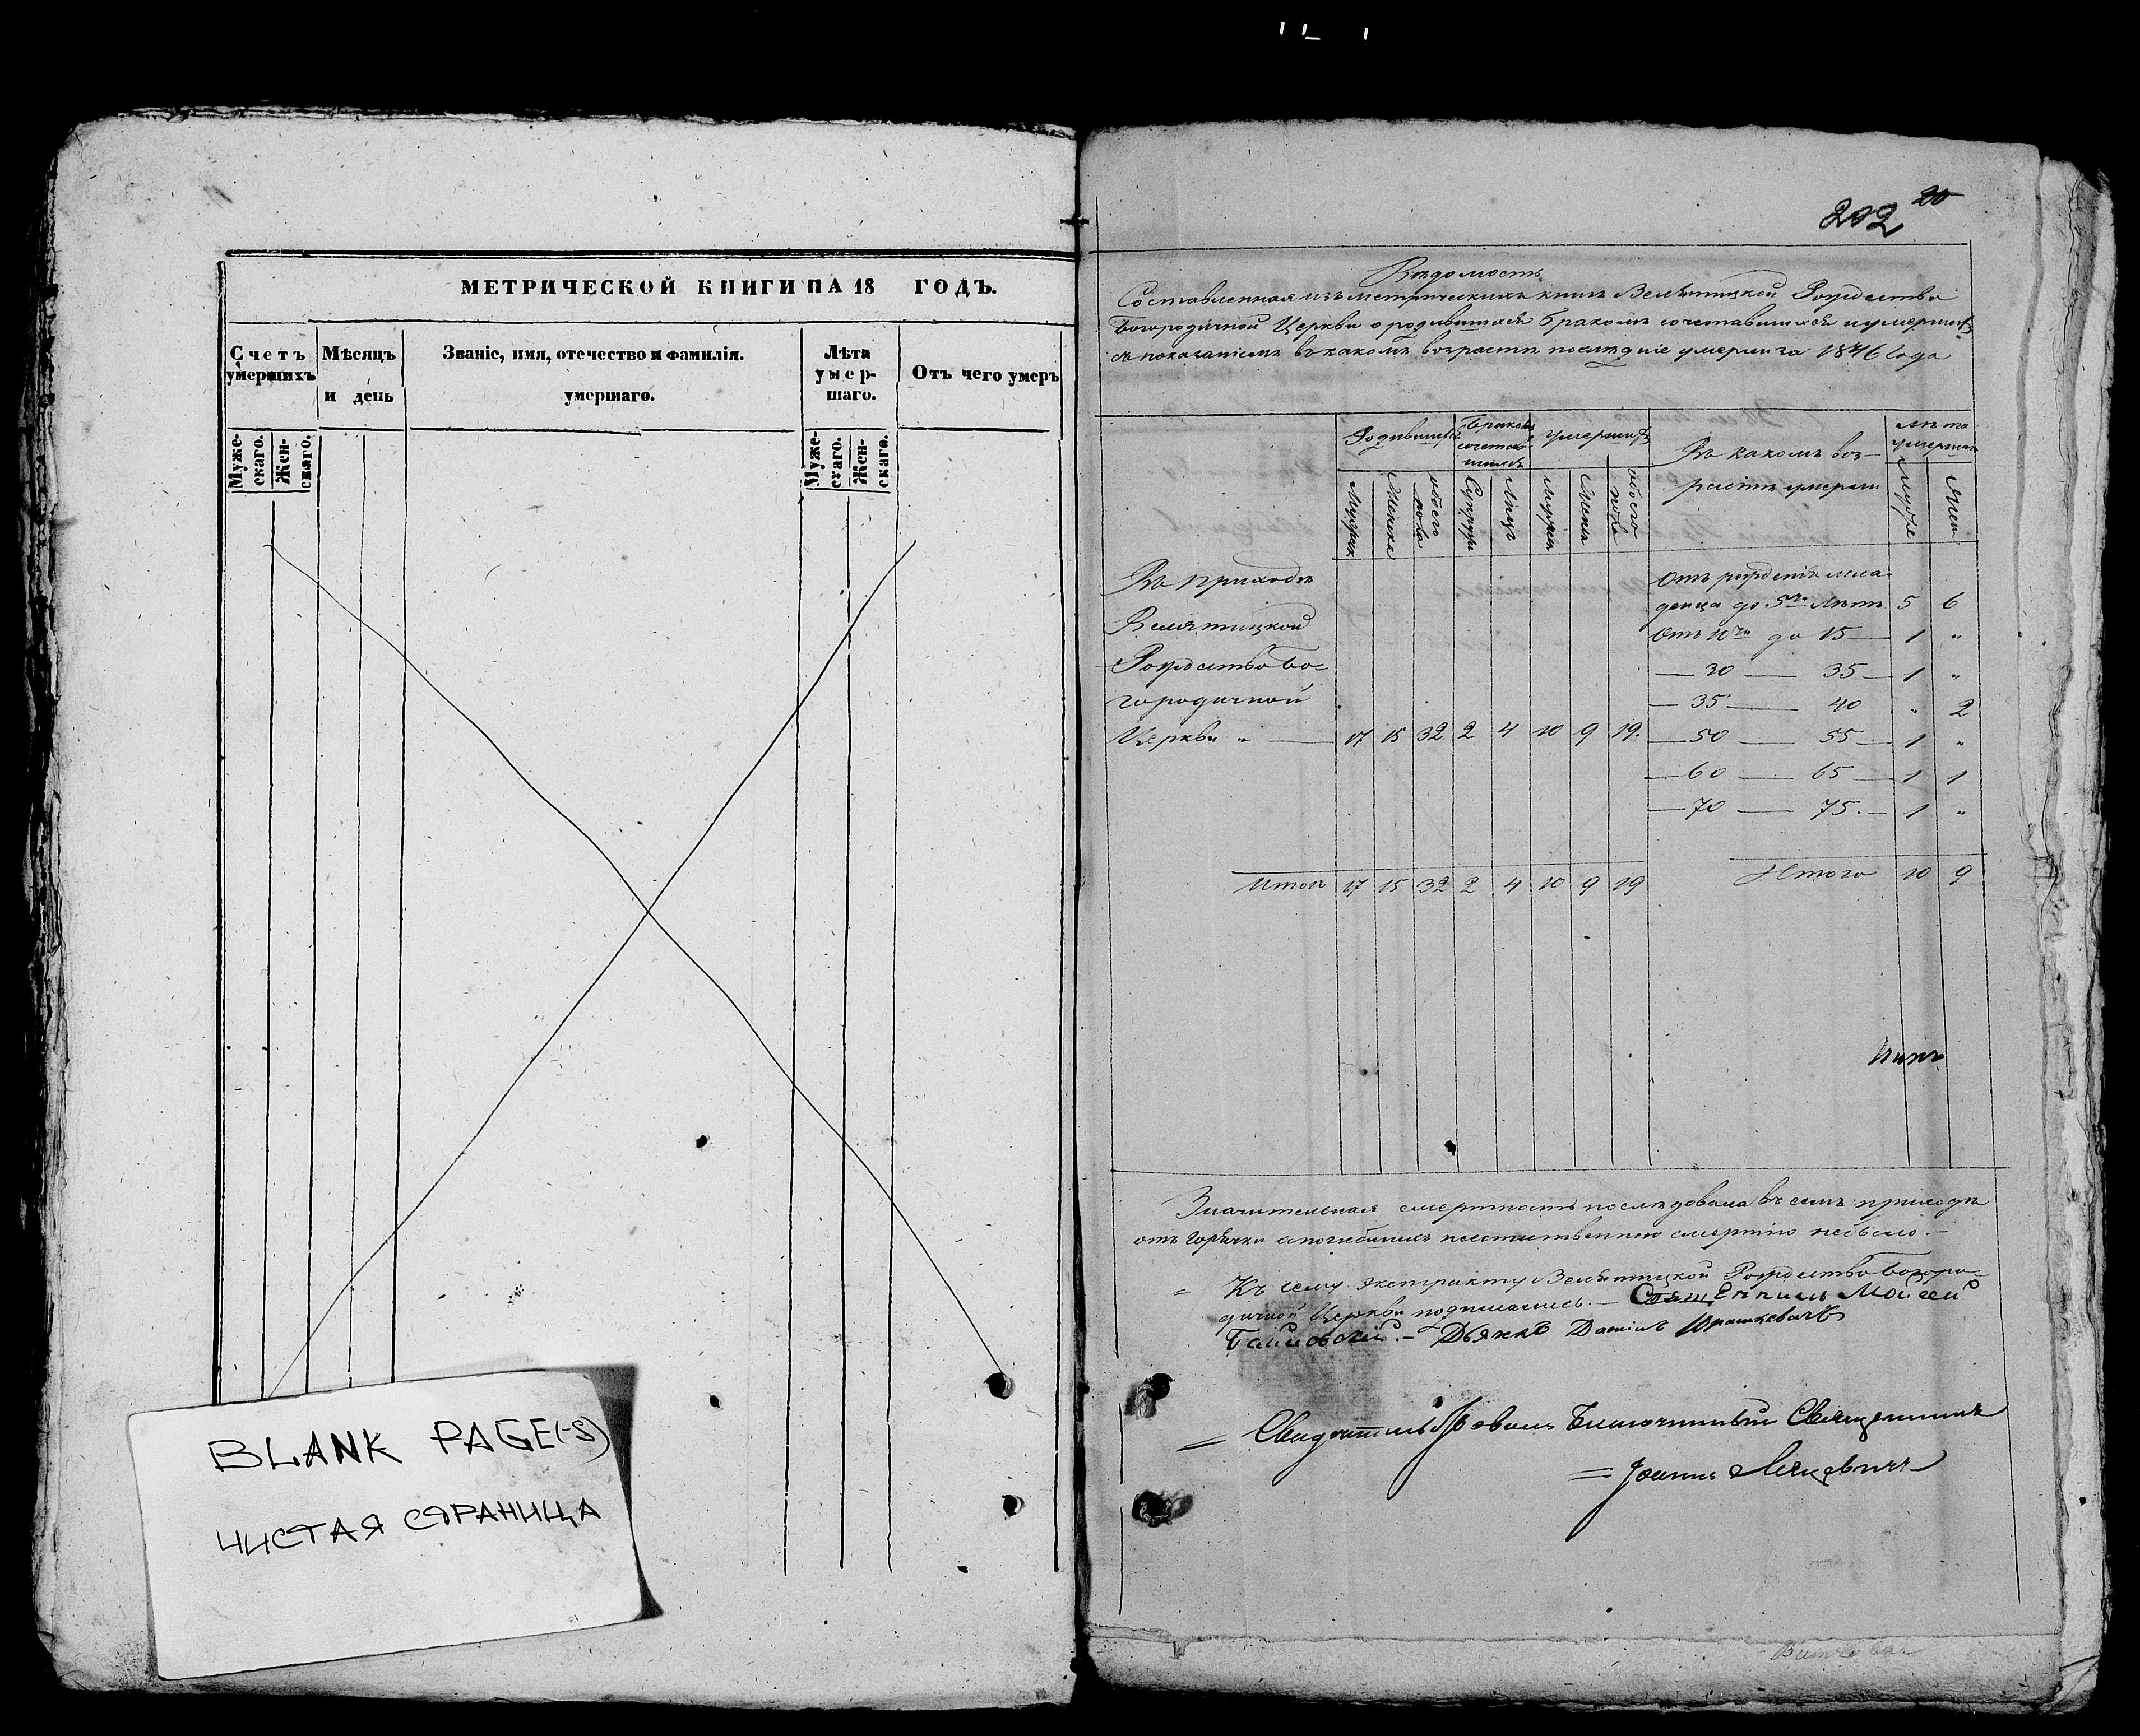 МЕТРИЧЕСКОЙ КНИГИ НА 18 ГОДЪ.
Счетъ умершихъ
Мѣсяцъ и день
Званіе, имя, отечество и фамилія. умершаго.
Лѣта умер-шаго.
Отъ чего умеръ
Муже-скаго.
Жен-скаго.
Муже-скаго.
Жен-скаго.
BLANK PAGE(-S)
ЧИСТАЯ СТРАНИЦА
202 20
Вѣдомость
Составленная изъ метрическихъ книгъ Велятицкой Рождество
Богородичной Церкви о родившихся бракомъ сочетавшихся и умершихъ
съ показаніемъ въ какомъ возрастѣ послѣдніе умерли за 1846 года
Родившихся
Бракомъ сочетавшихся
умершихъ
Въ какомъ воз-
растѣ умерли
лѣта умершихъ
Мужск
Женска
обоего пола
Супруж
Лицъ
Мужск
Женск
обоего пола
Муже
Жен
Въ приходѣ
Велятицкой
Рождество Бо-
городичной
Церкви " — 17 15 32 2 4 10 9 19.
Отъ рожденія мла-
денца до 5ти лѣтъ 5 6
Отъ 10ти до 15 — 1 "
— 30 — 35 — 1 "
— 35 — 40 " 2
— 50 — 55 — 1 "
— 60 — 65 — 1 1
— 70 — 75. — 1 "
Итого 17 15 32 2 4 10 9 19
Итого 10 9
Значительная смертность послѣдовала въ семъ приходѣ
отъ горячки а погибшихъ неестественною смертію небыло. —
Къ сему экстракту Велятицкой Рождество Богоро-
дичной Церкви подписались. — Священникъ Моисей
— Дьячекъ Даніилъ Юрашкевичъ
= Свидѣтельствовалъ Благочинный Священникъ
= Іоаннъ